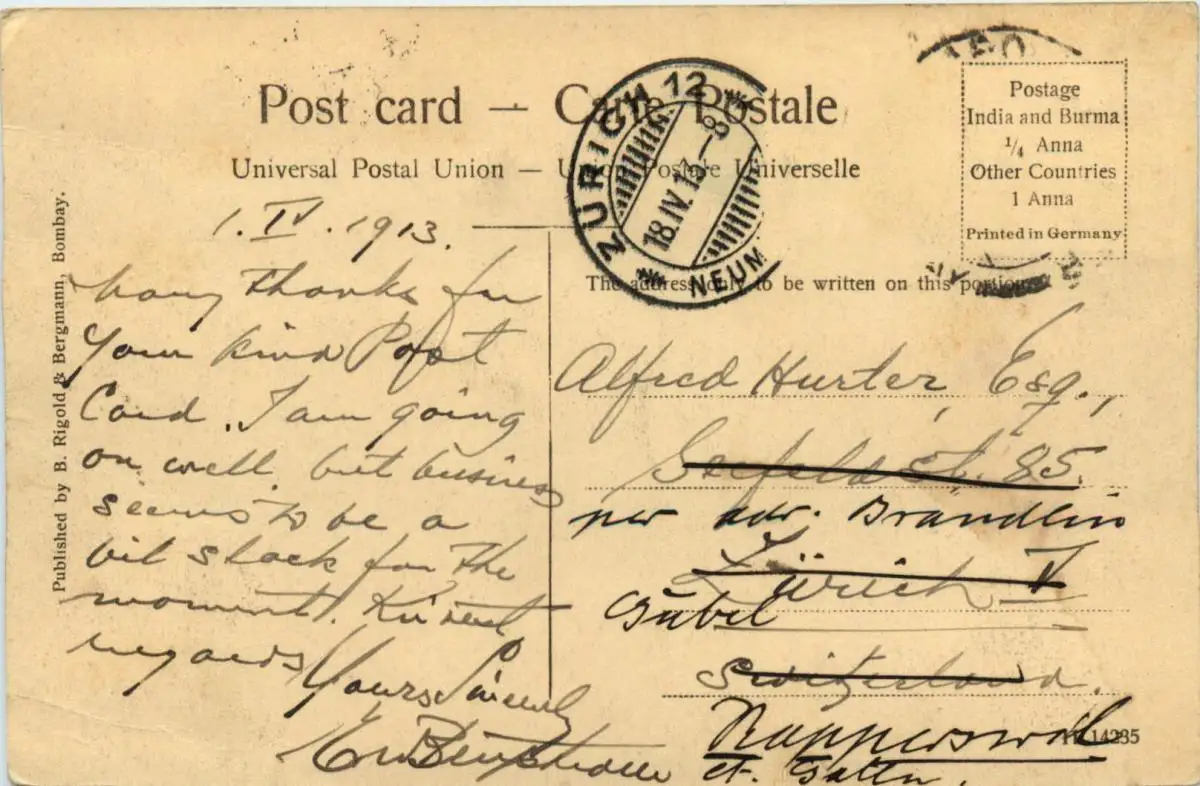 Post card — Carte Postale
Universal Postal Union — Union Postale Universelle
ZÜRICH 12
18.IV.13-8
NEUM
Postage
India and Burma
1/4 Anna
Other Countries
1 Anna
Printed in Germany
The address only to be written on this portion
Published by B. Rigold & Bergmann, Bombay.
1. IV. 1913.
Many thanks for
your kind Post
Card. I am going
on well, but business
seems to be a
bit slack for the
moment. Kindest
regards
Yours Sincerely
Alfred Hurter, Esq.,
Seefeld st. 85.
per adr. Brändlin
Zürich V
Gubel
Switzerland.
Rapperswil
st. Gallen.
14235